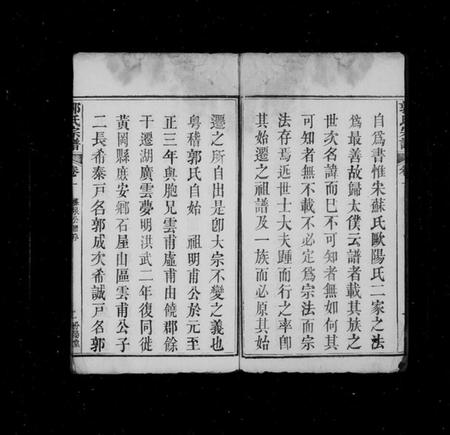 自爲書惟朱蘇氏歐陽氏二家之法
爲最善故歸太僕云譜者載其族之
世次名諱而已不可知者無如何其
可知者無不載不必定爲宗法而宗
法存焉近世士大夫踵而行之率卽
其始遷之祖譜及一族而必原其始
遷之所自出是卽大宗不變之義也
粤稽郭氏自始 祖明甫公於元至
正三年與胞兄雲甫虛甫由饒郡餘
干遷湖廣雲夢明洪武二年復同徙
黃岡縣庶安鄉石屋山區雲甫公子
二長希泰戸名郭成次希誠戸名郭
郭氏宗譜 卷一